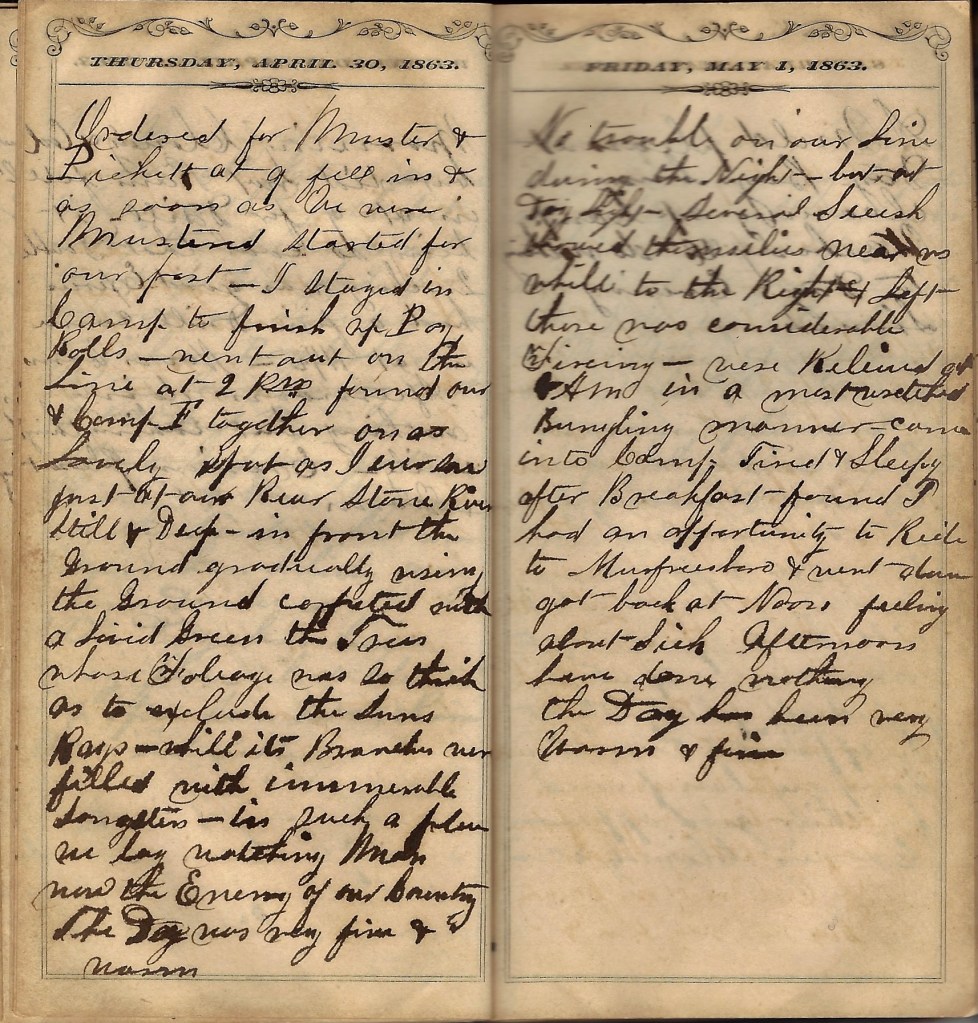 THURSDAY, APRIL 30, 1863.
Ordered for Muster &
Pickett at 9 fell in &
as soon as We were
Mustered started for
our post – I stayed in
Camp to finish up Pay
Rolls – went out on the
Line at 2 found our
& Comp F together on as
Lovely spot as I ever saw
just at our Rear Stone River
Still & Deep – in front the
Ground gradually rising
the Ground carpeted with
a Livid Green the Trees
whose Foliage was so thick
as to exclude the Suns
Rays – whill its Branches wer
filled with inumerable
Songsters – in such a place
we lay watching Man
now the Enemy of our Country
The Day was very fine &
warm
FRIDAY, MAY 1, 1863.
No trouble on our Line
during the Night – but at
Day Several Secesh
showed themselves near us
while to the Right & Left
there was considerable
Fireing – were Relieved at
AM in a most wretched
Bungling manner – came
into Camp Tired & Sleepy
after Breakfast – found I
had an oppertunity to Ride
to Murfreesboro & went down
got back at Noon feeling
about Sick Afternoon
have done nothing
the Day has been very
Warm & fine